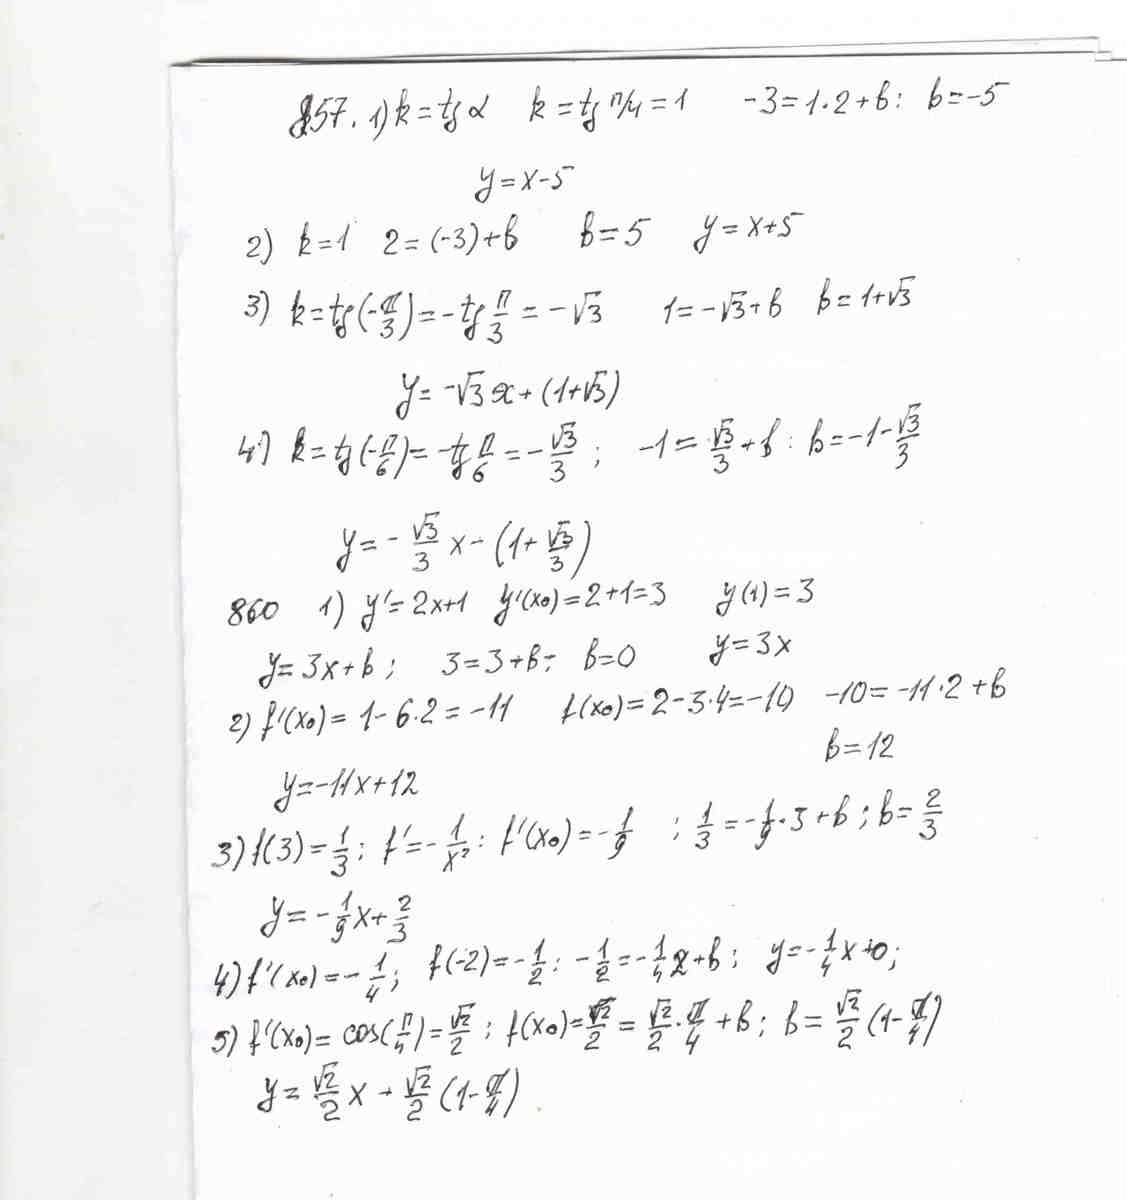 857. 1) k = tg α   k = tg π/4 = 1   -3 = 1·2 + b : b = -5
y = x - 5
2) k = 1   2 = (-3) + b   b = 5   y = x + 5
3) k = tg(-π/3) = -tg π/3 = -√3   1 = -√3 + b   b = 1 + √3
y = -√3 x + (1 + √3)
4) k = tg(-π/6) = -tg π/6 = -√3/3 ;   -1 = √3/3 + b : b = -1 - √3/3
y = -√3/3 x - (1 + √3/3)
860   1) y' = 2x + 1   y'(x₀) = 2 + 1 = 3   y(1) = 3
y = 3x + b ;   3 = 3 + b ;   b = 0   y = 3x
2) f'(x₀) = 1 - 6·2 = -11   f(x₀) = 2 - 3·4 = -10   -10 = -11·2 + b
b = 12
y = -11x + 12
3) f(3) = 1/3 ; f' = -1/x² : f'(x₀) = -1/9 ; 1/3 = -1/9·3 + b ; b = 2/3
y = -1/9 x + 2/3
4) f'(x₀) = -1/4 ;   f(-2) = -1/2 : -1/2 = -1/4 2 + b ;   y = -1/4 x + 0 ;
5) f'(x₀) = cos(π/4) = √2/2 ; f(x₀) = √2/2 = √2/2·π/4 + b ; b = √2/2 (1 - π/4)
y = √2/2 x + √2/2 (1 - π/4)